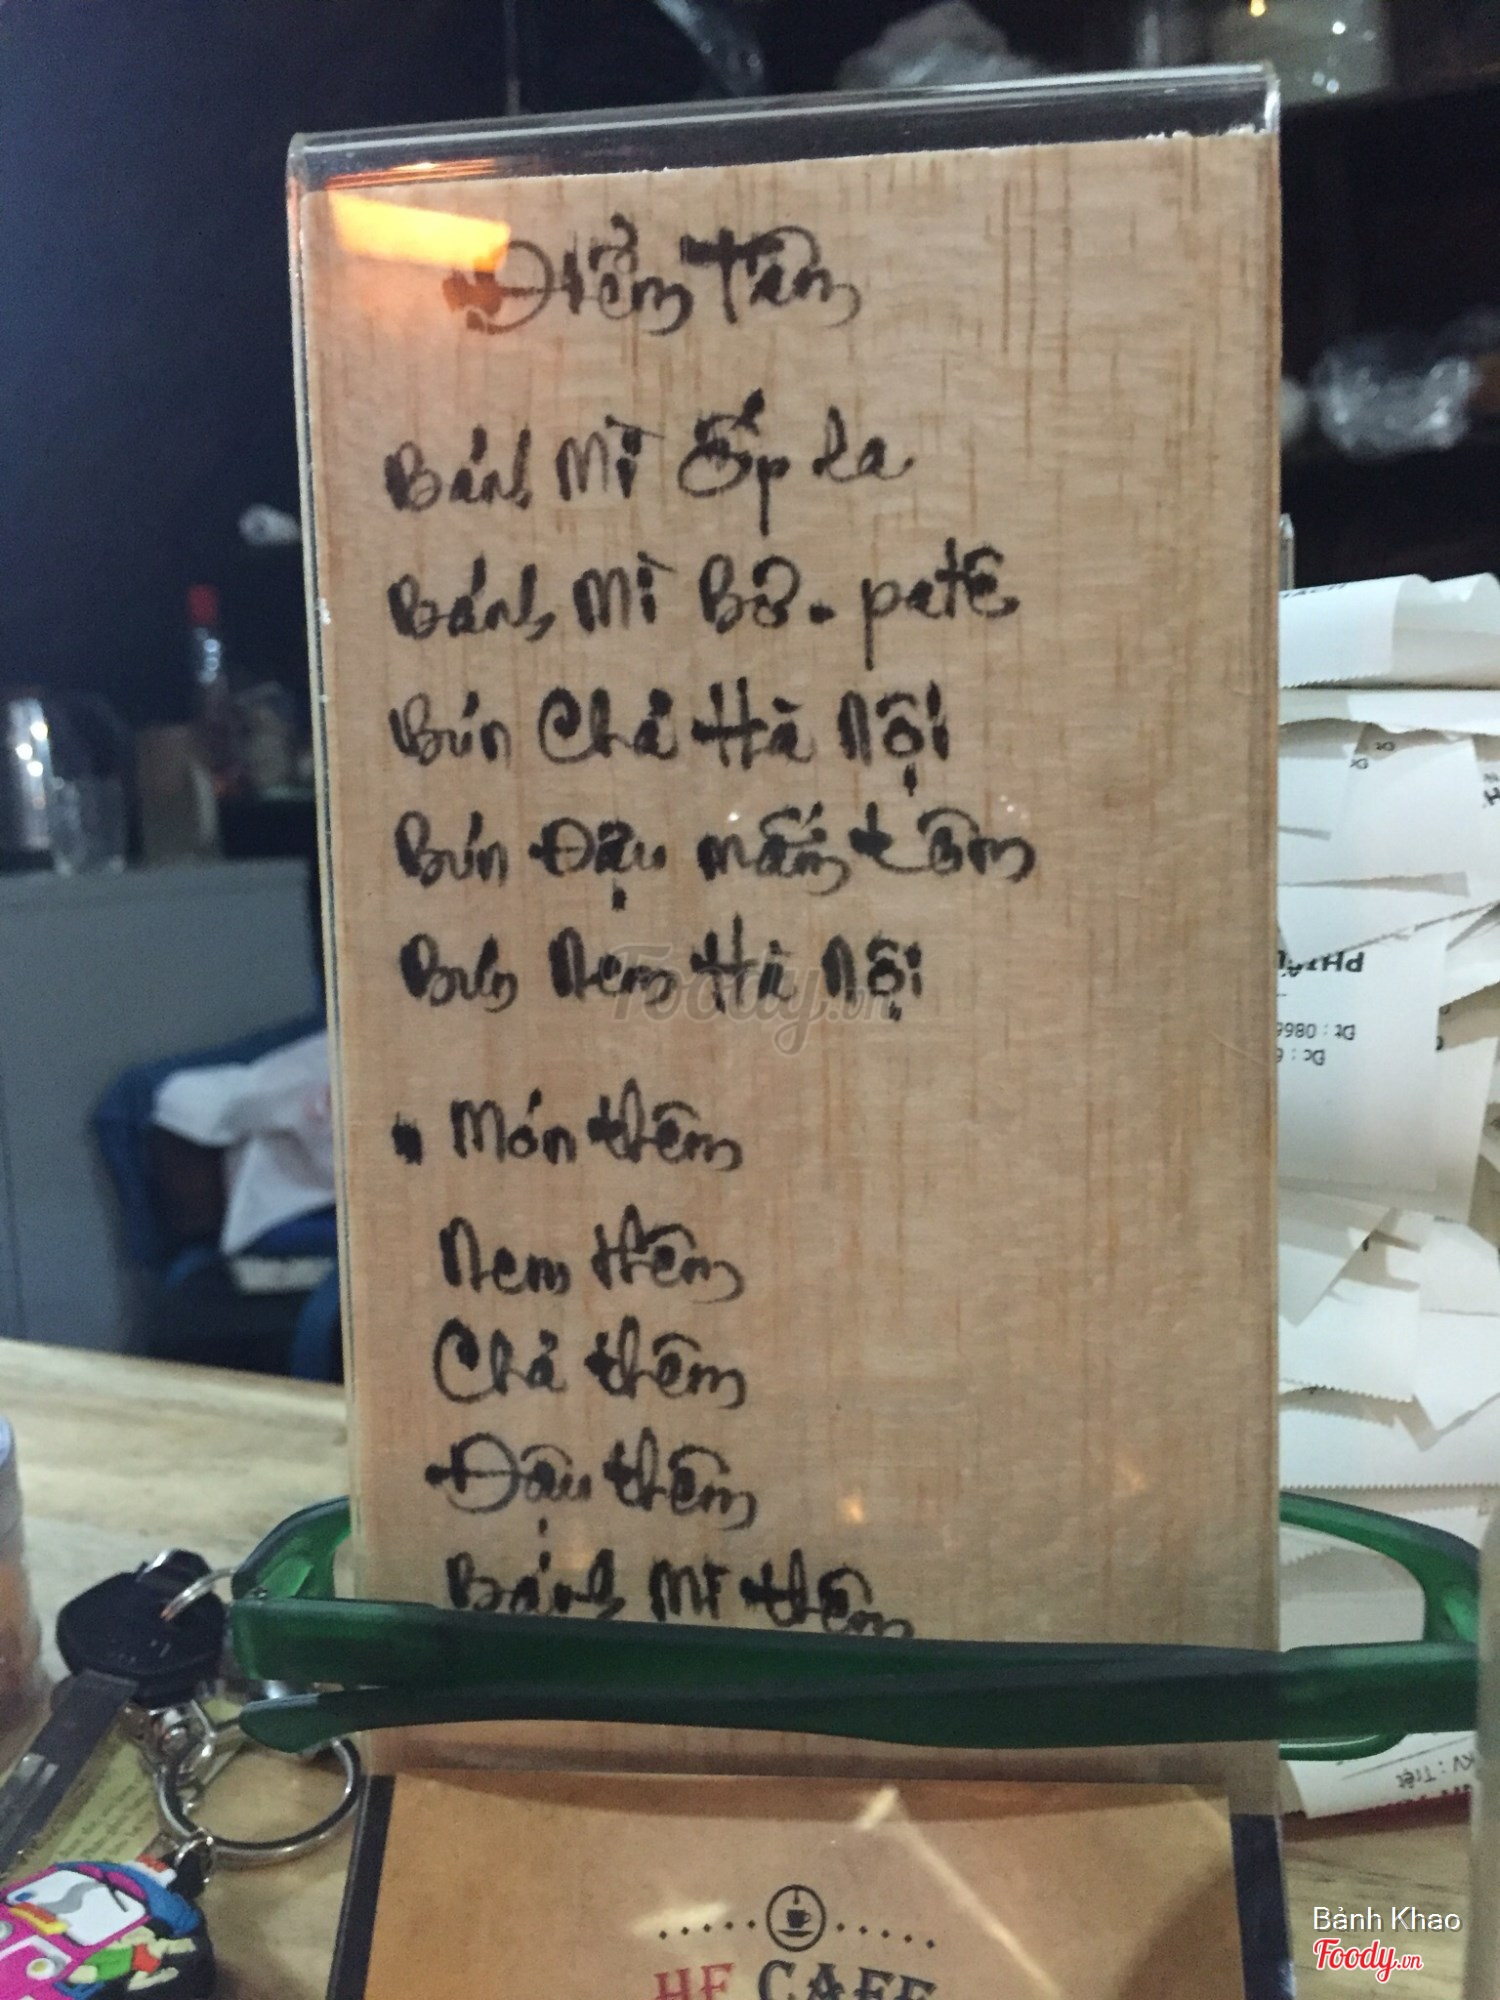 Điểm Tâm
Bánh Mì Ốp La
Bánh Mì Bò - patê
Bún Chả Hà Nội
Bún Đậu mắm tôm
Bún Nem Hà Nội
Món thêm
Nem thêm
Chả thêm
Đậu thêm
Bánh Mì thêm
HF CAFE
Foody.vn
Bảnh Khao
Foody.vn